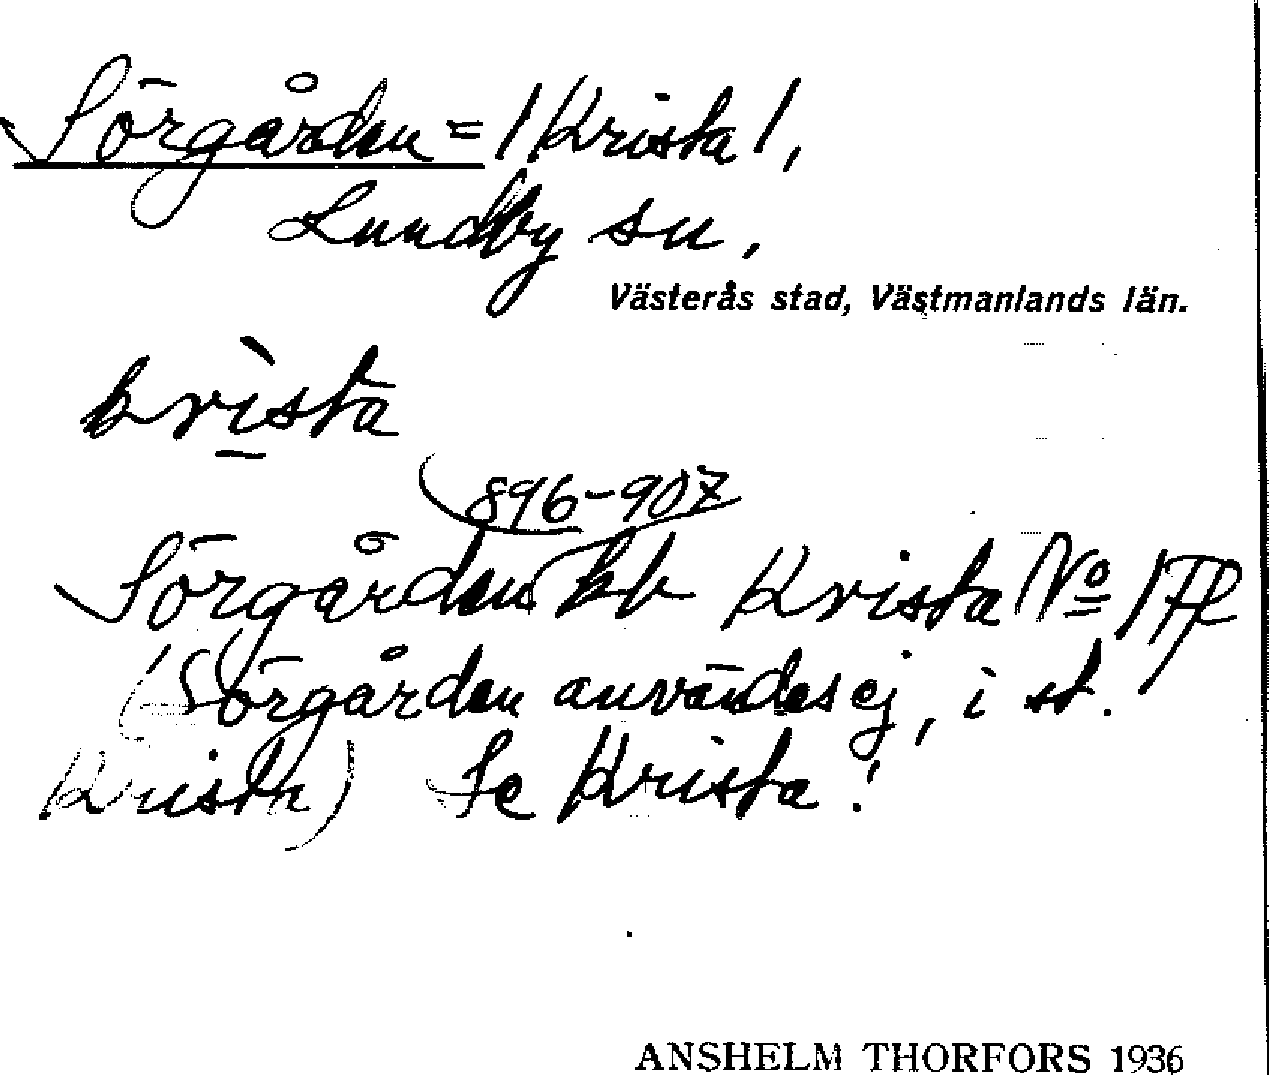 Sörgården = /Krista/,
Lundby sn,
Västerås stad, Västmanlands län.
krìsta
896-907
Sörgården kb Krista No 1
(Sörgården användes ej, i st.
Krista) Se Krista!
ANSHELM THORFORS 1936